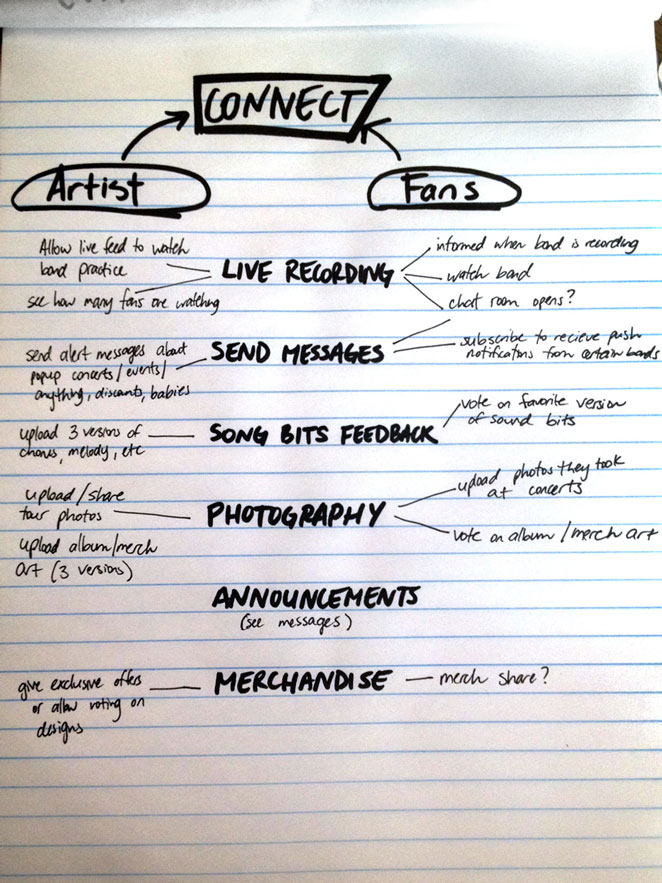 CONNECT
Artist
Fans
Allow live feed to watch
band practice
see how many fans are watching
LIVE RECORDING
informed when band is recording
watch band
chat room opens?
send alert messages about
popup concerts/events/
anything, discounts, babies
SEND MESSAGES
subscribe to recieve push
notifications from certain bands
upload 3 versions of
chorus, melody, etc
SONG BITS FEEDBACK
vote on favorite version
of sound bits
upload/share
tour photos
upload album/merch
art (3 versions)
PHOTOGRAPHY
upload photos they took
at concerts
vote on album/merch art
ANNOUNCEMENTS
(see messages)
give exclusive offers
or allow voting on
designs
MERCHANDISE
merch share?